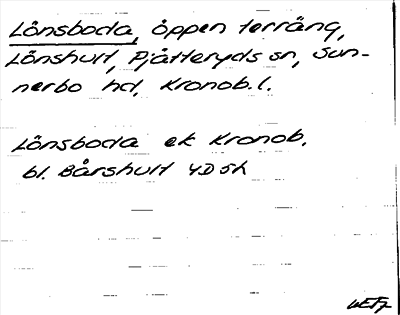 Lönsboda, öppen terräng,
Lönshult, Pjätteryds sn, Sun-
nerbo hd, Kronob. l.
Lönsboda ek Kronob.
bl. Bårshult 4D5h